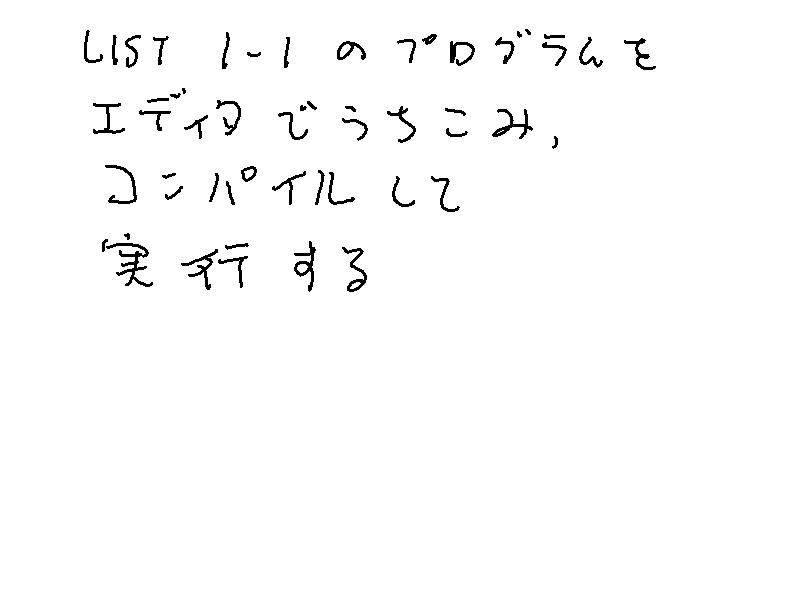 LIST 1-1 のプログラムを
エディタでうちこみ,
コンパイルして
実行する